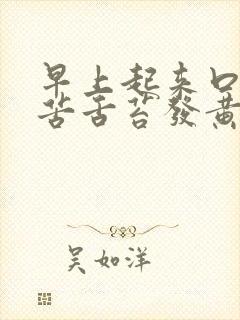 早上起来口
苦舌苔發黄
吴如洋